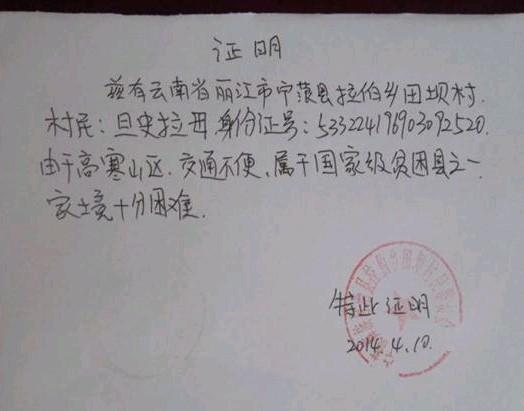 证明
兹有云南省丽江市宁蒗县拉伯乡田坝村.
村民：旦史拉 身份证号：533224196903092520.
由于高寒山区.交通不便、属于国家级贫困县之一
家境十分困难.
特此证明
2014.4.10.